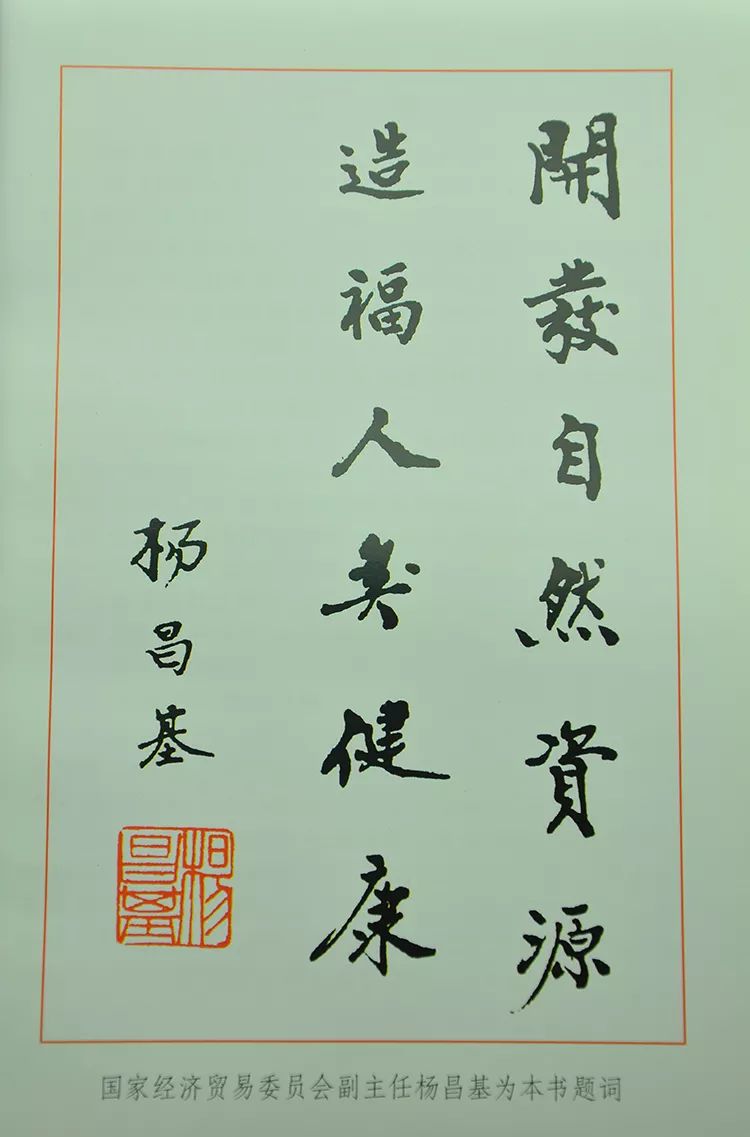 開發自然資源
造福人类健康
杨昌基
楊昌基
国家经济贸易委员会副主任杨昌基为本书题词